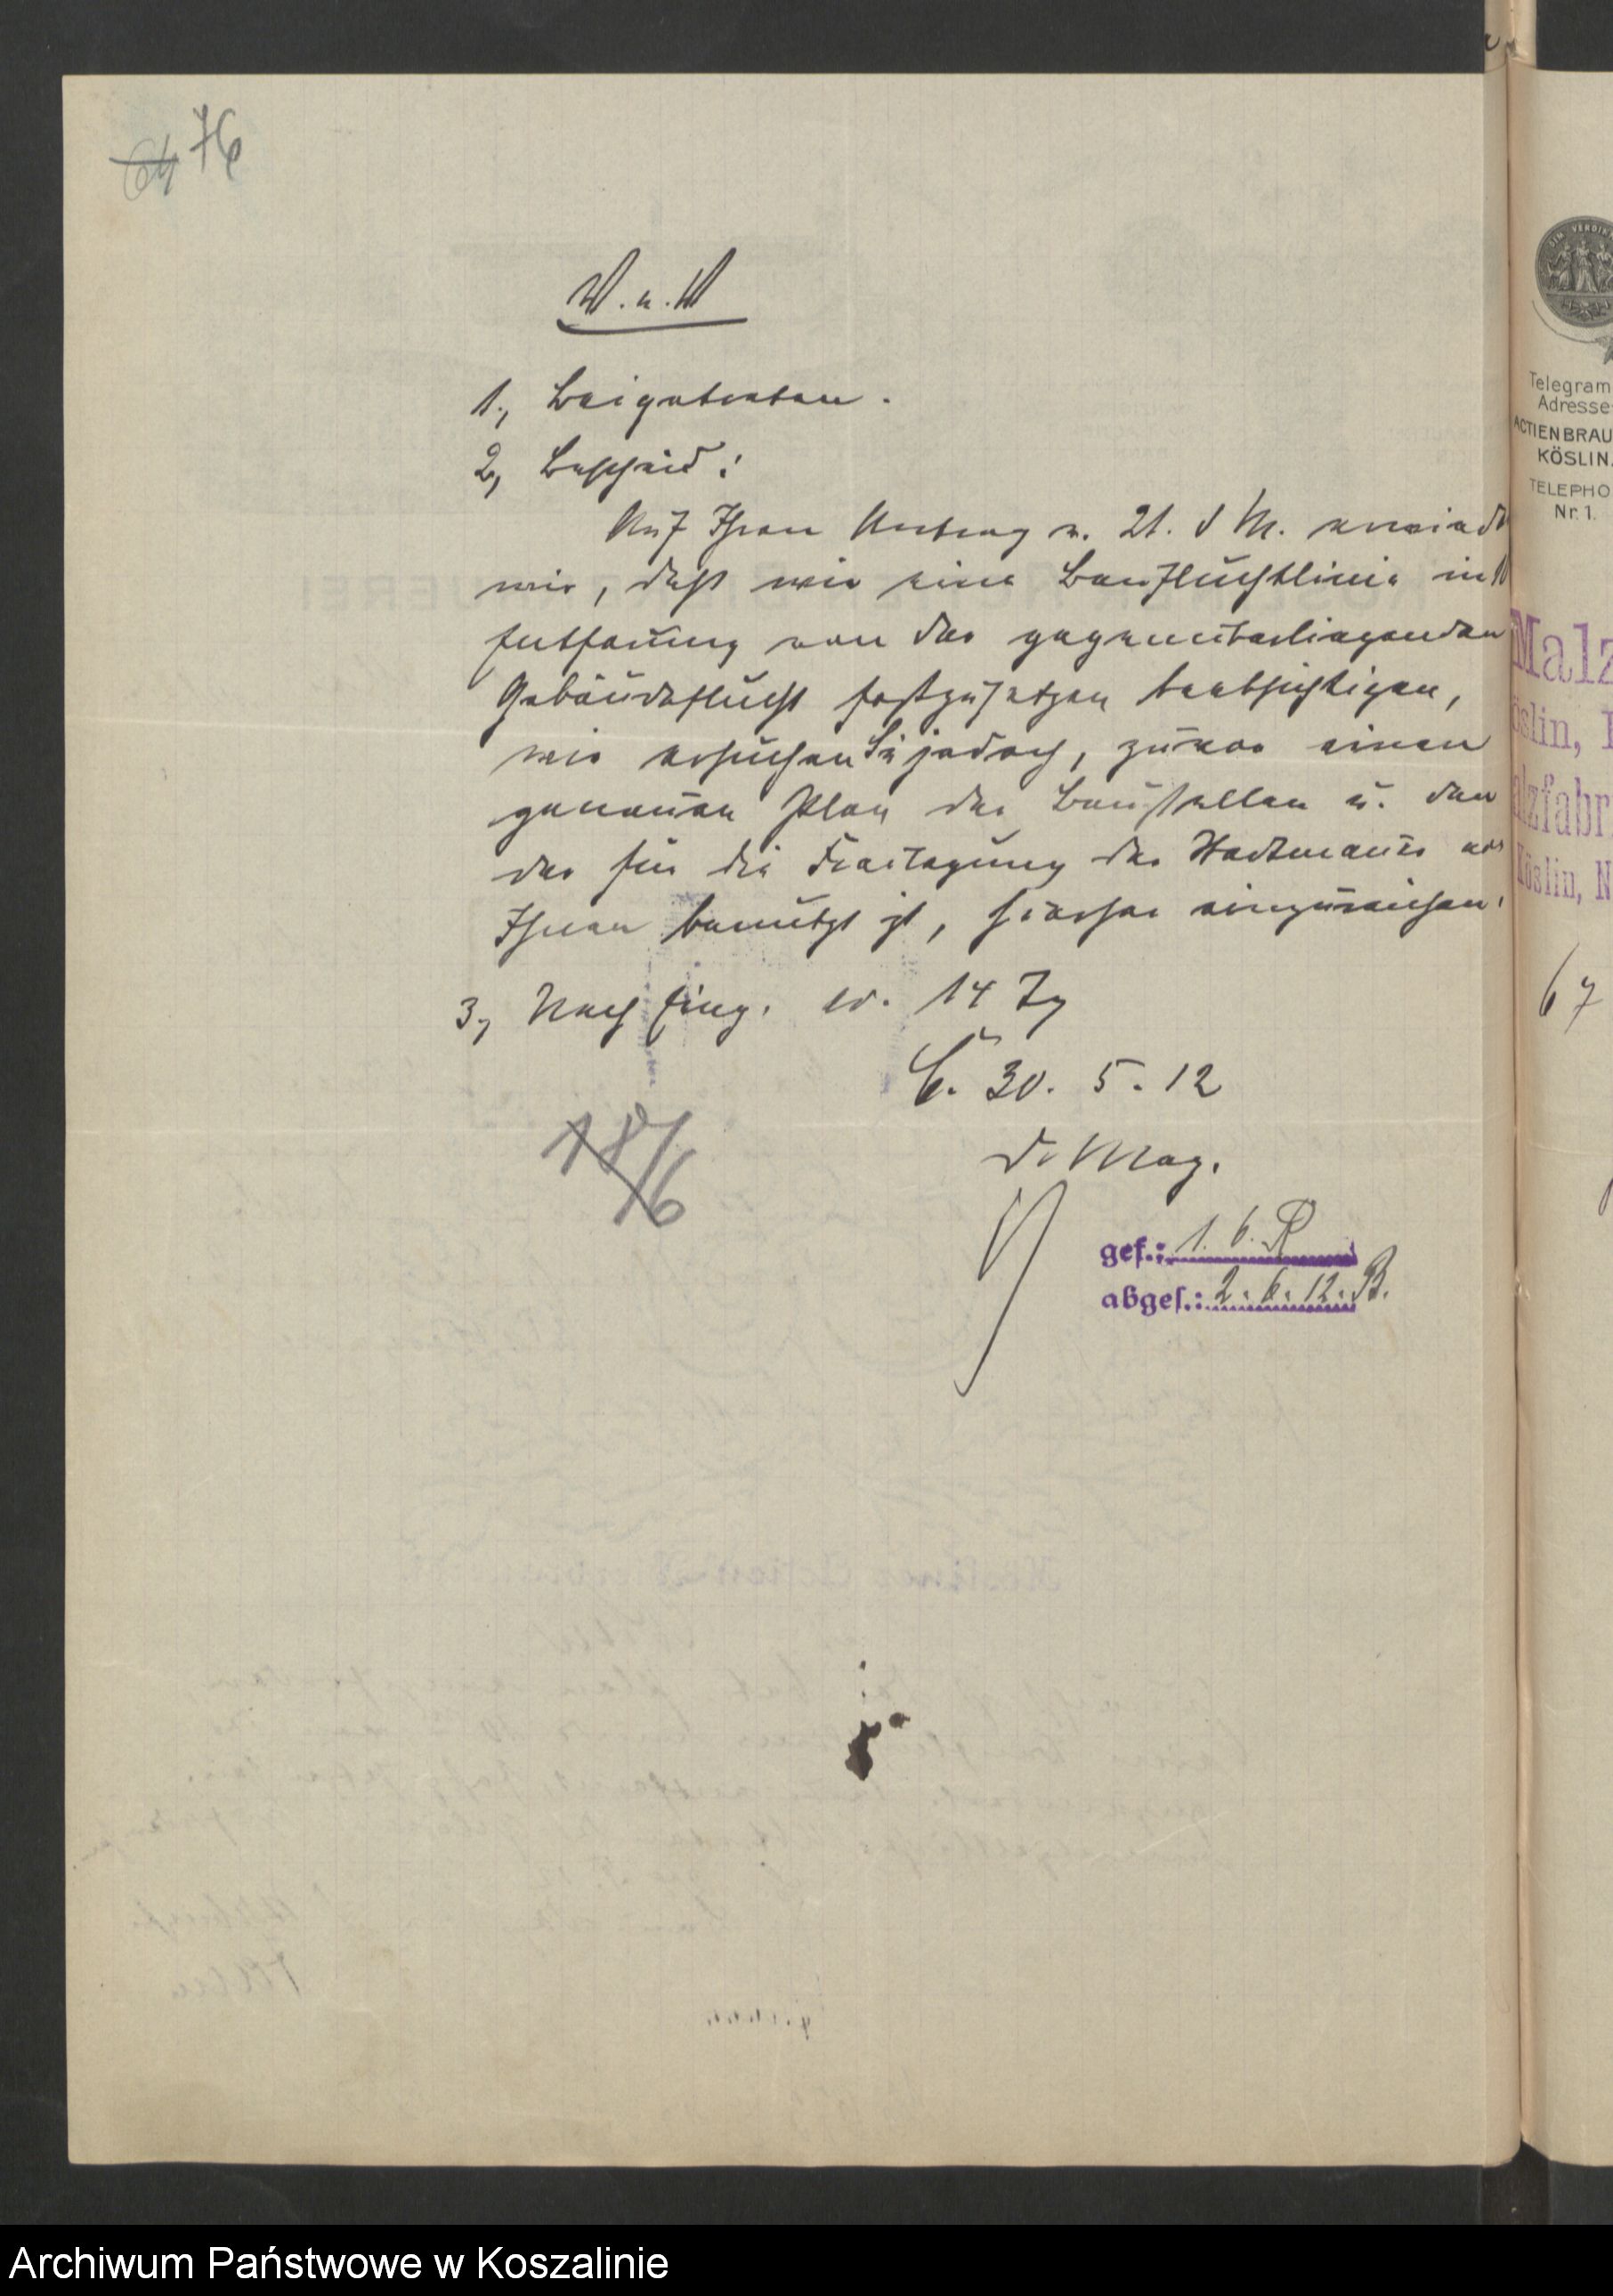 64 76
W. u. W
1., Beigetreten.
2, Bescheid:
Auf Ihren Antrag v. 21. d M.
wir, daß wir eine Baufluchtlinie in
Entfernung von der gegenüberliegenden
Gebäudeflucht festzusetzen beabsichtigen,
wir ersuchen Sie jedoch, zuvor einen
genauen Plan der Baustellen u. den
der für die Freilegung der Stadtmauer von
Ihnen benutzt ist, hierher einzureichen.
3, Nach Eing. ev. 14 Tg
C. 30. 5. 12
D. Mag.
18/6
gef.: 1. 6. R
abges.: 2. 6. 12. B.
Telegram
Adresse:
ACTIENBRAU
KÖSLIN.
TELEPHO
Nr. 1.
Malz
öslin,
alzfabr
Köslin, N
67
Archiwum Państwowe w Koszalinie